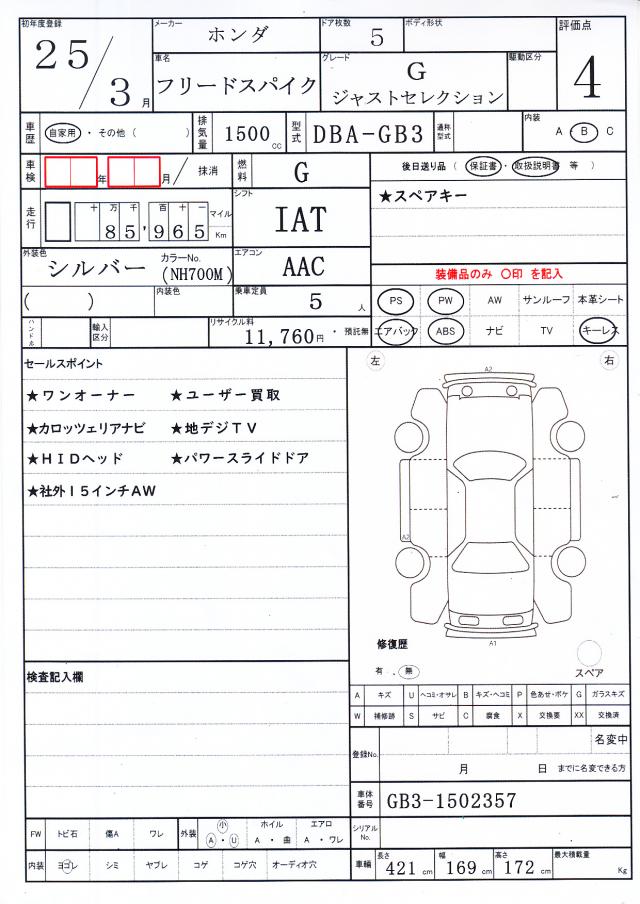 初年度登録 メーカー ホンダ ドア枚数 5 ボディ形状 評価点
25/3月 車名 フリードスパイク グレード G ジャストセレクション 駆動区分 4
車歴 自家用・その他( ) 排気量 1500cc 型式 DBA-GB3 通称型式 内装 A・B C
車検 年 月/ 抹消 燃料 G 後日送り品(保証書・取扱説明書 等)
走行 十万千百十一 85,965 マイル Km シフト IAT ★スペアキー
外装色 シルバー カラーNo. (NH700M) エアコン AAC 装備品のみ 〇印 を記入
( ) 内装色 乗車定員 5人 PS PW AW サンルーフ 本革シート
ハンドル 輸入区分 リサイクル料 11,760円・預託無 エアバック ABS ナビ TV キーレス
セールスポイント 左 右
★ワンオーナー ★ユーザー買取
★カロッツェリアナビ ★地デジTV
★HIDヘッド ★パワースライドドア
★社外15インチAW
A2
A2
A1
修復歴
有 . 無 スペア
検査記入欄
A キズ U ヘコミ・オサレ B キズ・ヘコミ P 色あせ・ボケ G ガラスキズ
W 補修跡 S サビ C 腐食 X 交換要 XX 交換済
登録No. 名変中
月 日 までに名変できる方
車体番号 GB3-1502357
FW トビ石 傷A ワレ 外装 小 A・U ホイル A・曲 エアロ A・ワレ シリアルNo.
内装 ヨゴレ シミ ヤブレ コゲ コゲ穴 オーディオ穴 車輌 長さ 421cm 幅 169cm 高さ 172cm 最大積載量 Kg